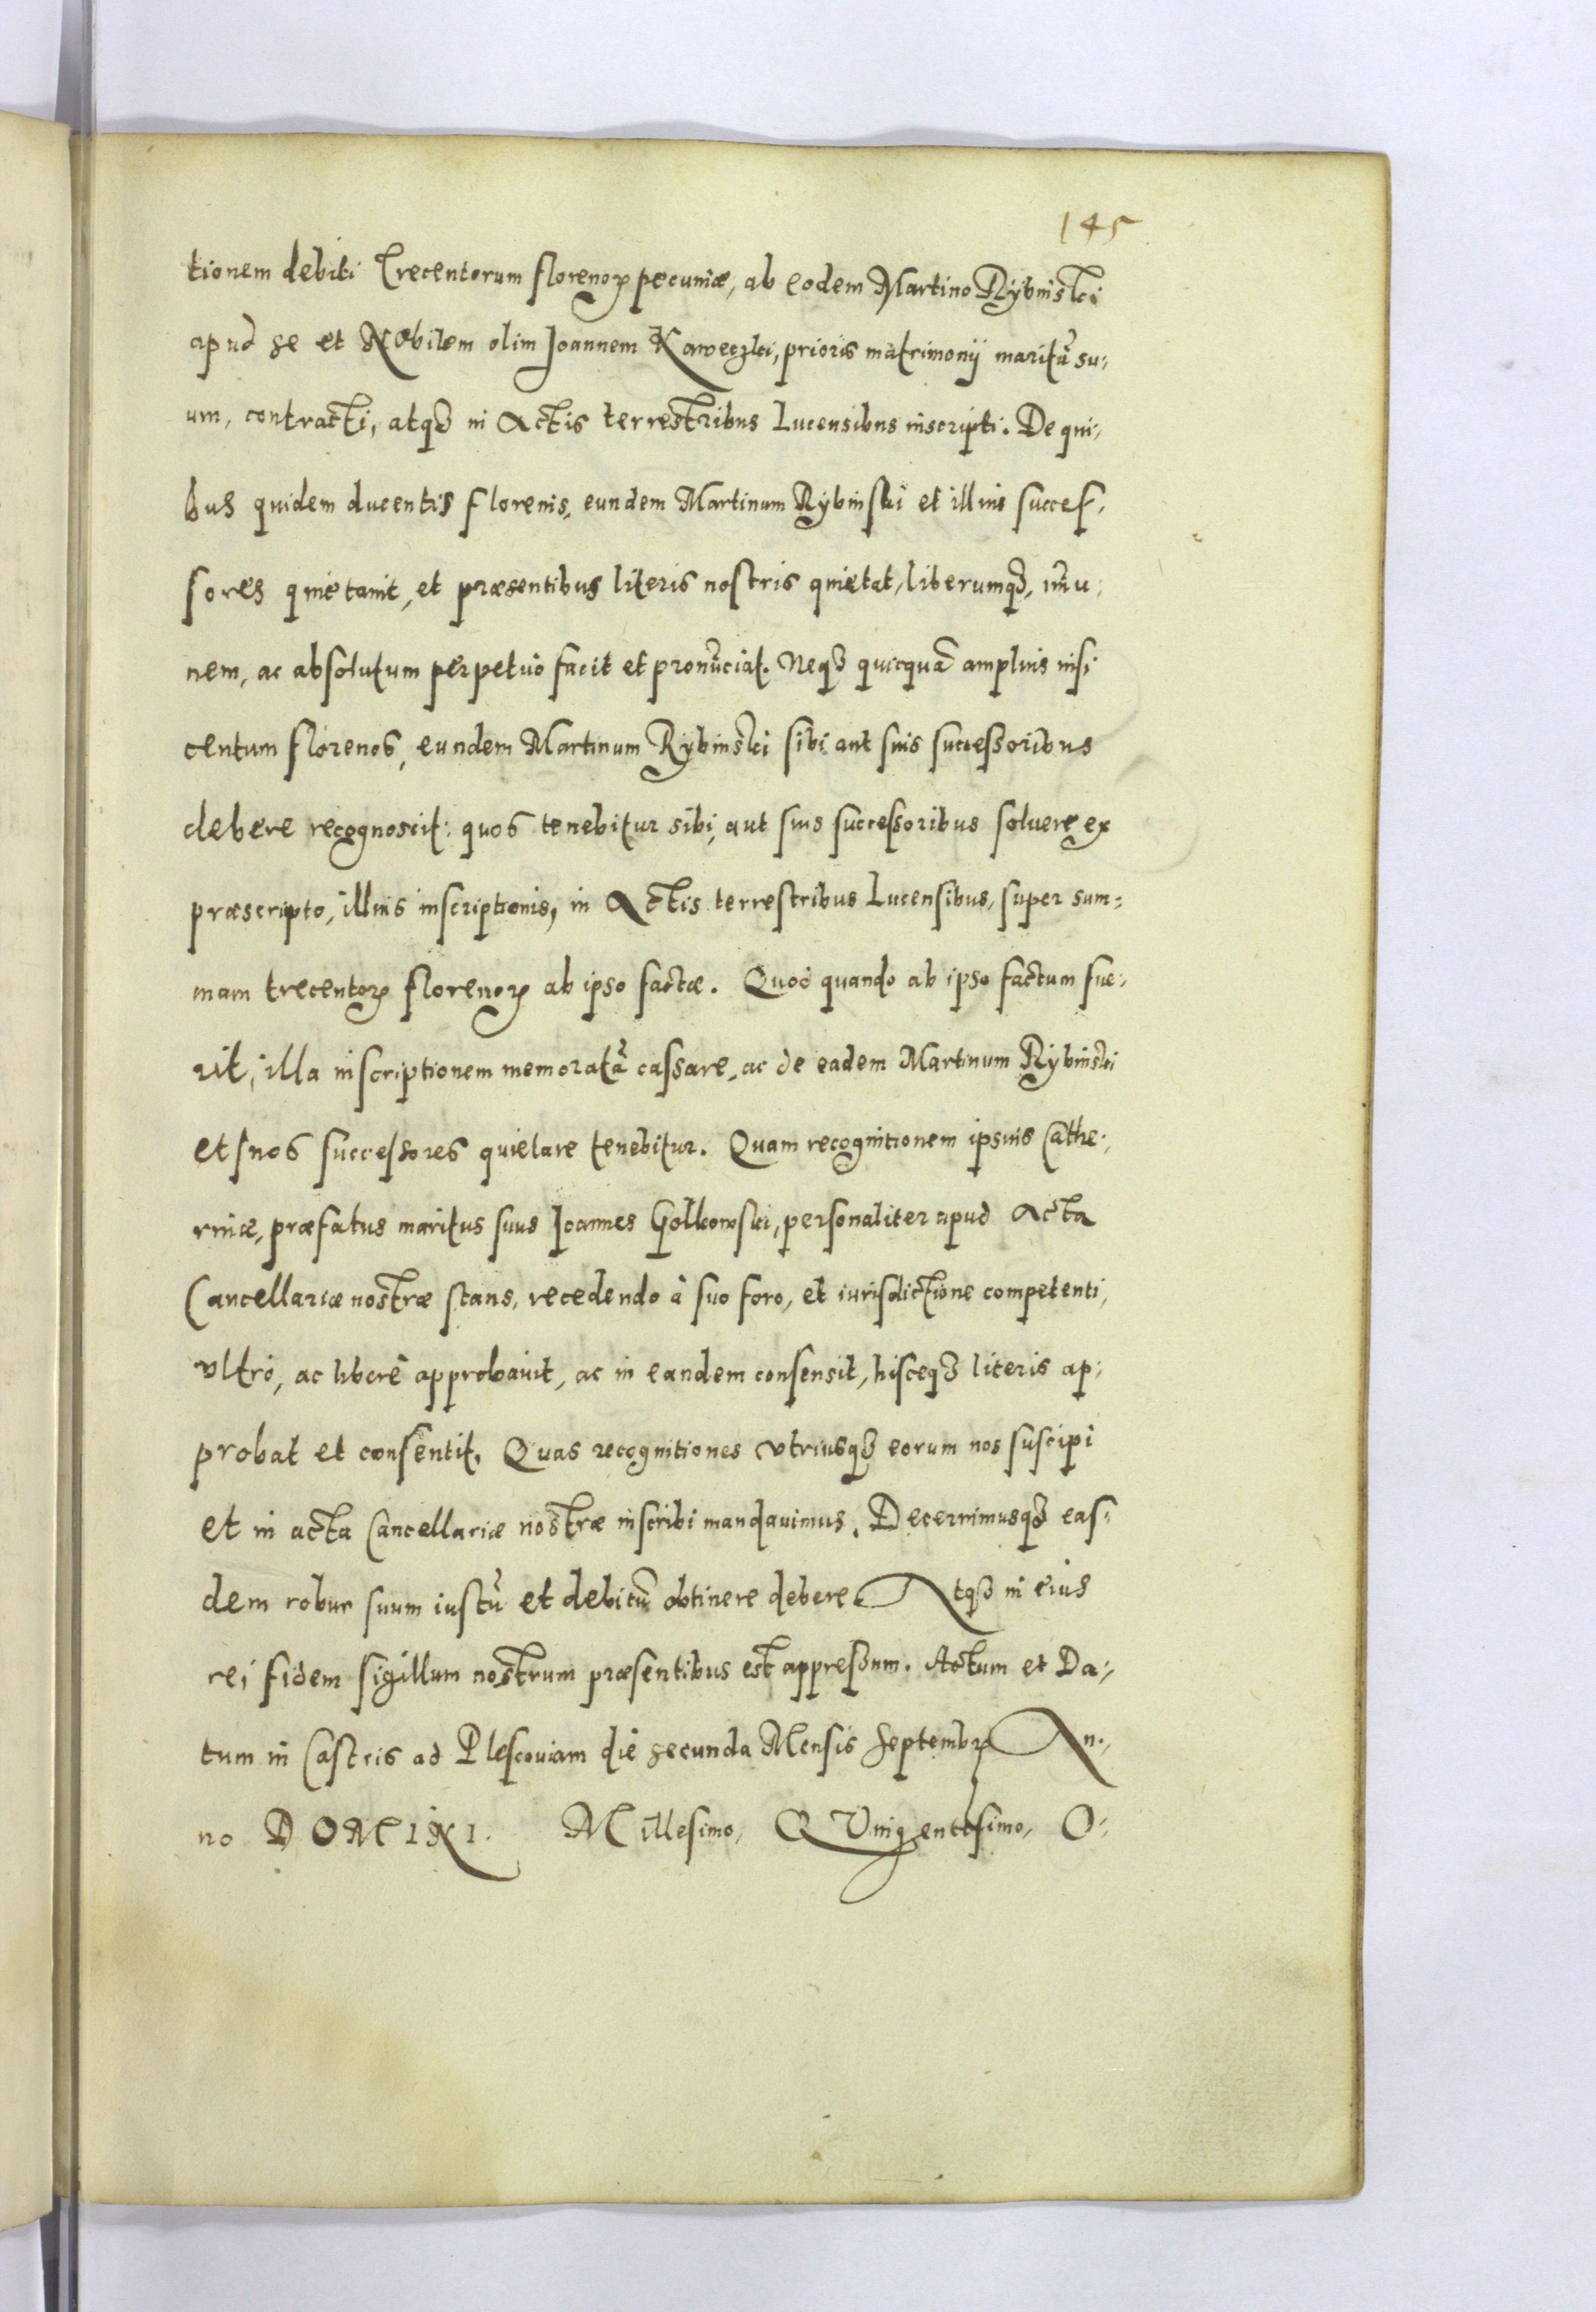 145
tionem debiti trecentorum florenoꝝ pecuniæ, ab eodem Martino Rybinski
apud se et Nobilem olim Joannem Kaweczki, prioris matrimonij maritũ su⸗
um, contracti, atqꝫ in Actis terrestribus Lucensibus inscripti. De qui⸗
bus quidem ducentis florenis, eundem Martinum Rybinski et illius succes⸗
sores quietauit, et præsentibus literis nostris quietat, liberumqꝫ, im̃u⸗
nem, ac absolutum perpetuò facit et pronũciat. Neqꝫ quicquã amplius nisi
centum florenos, eundem Martinum Rybinski sibi aut suis successoribus
debere recognoscit: quos tenebitur sibi, aut suis successoribus soluere ex
præscripto, illius inscriptionis, in Actis terrestribus Lucensibus, super sum⸗
mam trecentoꝝ florenoꝝ ab ipso factæ. Quod quando ab ipso factum fue⸗
rit, illa inscriptionem memoratã cassare, ac de eadem Martinum Rybinski
et suos successores quietare tenebitur. Quam recognitionem ipsius Cathe⸗
rinæ, præfatus maritus suus Joannes Golkowski, personaliter apud Acta
Cancellariæ nostræ stans, recedendo à suo foro, et iurisdictione competenti,
vltrò, ac liberè approbauit, ac in eandem consensit, hisceqꝫ literis ap⸗
probat et consentit. Quas recognitiones vtriusqꝫ eorum nos suscipi
et in acta Cancellariæ nostræ inscribi mandauimus. Decernimusqꝫ eas⸗
dem robur suum iustũ et debitũ obtinere debere. Atqꝫ in eius
rei fidem sigillum nostrum præsentibus est appressum. Actum et Da⸗
tum in Castris ad Plescouiam die secunda Mensis Septembꝝ An⸗
no DOMINI. Millesimo, QUingentesimo, O⸗